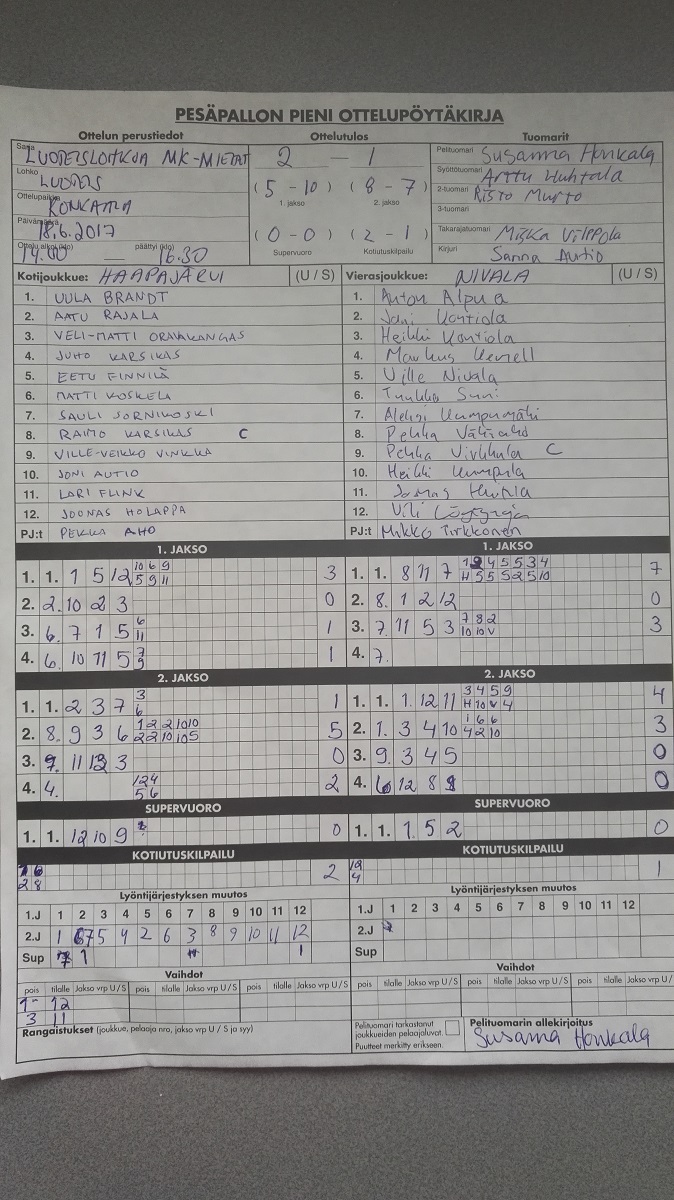 PESÄPALLON PIENI OTTELUPÖYTÄKIRJA
Ottelun perustiedot
Ottelutulos
Tuomarit
Sarja LUOTEISLOHKON MK-MIEHET
2 — 1
Pelituomari Susanna Honkala
Lohko LUOTEIS
(5 - 10) (8 - 7)
1. jakso 2. jakso
Syöttötuomari Arttu Huhtala
2-tuomari Risto Murto
Ottelupaikka
3-tuomari
Päivämäärä 18.6.2017
(0 - 0) (2 - 1)
Supervuoro Kotiutuskilpailu
Takarajatuomari Miska Vilppola
Ottelu alkoi (klo) 14.00 — päättyi (klo) 16.30
Kirjuri Sanna Autio
Kotijoukkue: HAAPAJÄRVI (U / S)
Vierasjoukkue: NIVALA (U / S)
1. UULA BRANDT
2. AATU RAJALA
3. VELI-MATTI ORAVAKANGAS
4. JUHO KARSIKAS
5. EETU FINNILÄ
6. MATTI KOSKELA
7. SAULI SORNIKOSKI
8. RAIMO KARSIKAS C
9. VILLE-VEIKKO VINKKA
10. JONI AUTIO
11. LARI FLINK
12. JOONAS HOLAPPA
PJ:t PEKKA AHO
1. Anton Alpua
2. Joni Kontiola
3. Heikki Kontiola
4. Markus
5. Ville Nivala
6. Tuukka Suni
7. Aleksi Kumpumäki
8. Pekka
9. Pekka C
10. Heikki Kumpula
11.
12.
PJ:t Mikko Tirkkonen
1. JAKSO
1. 1. 1 5 12 10 6 9 3
5 9 11
2. 2. 10 2 3 0
3. 6. 7 1 5 6 1
11
4. 6. 10 11 5 7 1
9
1. JAKSO
1. 1. 8 11 7 4 5 5 3 4 7
H 5 5 5 2 5 10
2. 8. 1 2 12 0
3. 7. 11 5 3 7 8 2 3
10 10 V
4. 7.
2. JAKSO
1. 1. 2 3 7 3 1
6
2. 8. 9 3 6 1 2 2 10 10 5
2 2 10 10 5
3. 9. 11 3 0
4. 4. 1 2 4 2
5 6
2. JAKSO
1. 1. 1 12 11 3 4 5 9 4
H 10 V 4
2. 1. 3 4 10 1 6 6 3
4 2 10
3. 9. 3 4 5 0
4. 6 12 8 0
SUPERVUORO
1. 1. 12 10 9 0
SUPERVUORO
1. 1. 1 5 2 0
KOTIUTUSKILPAILU
2 8 2
KOTIUTUSKILPAILU
12 1
4
Lyöntijärjestyksen muutos
1.J 1 2 3 4 5 6 7 8 9 10 11 12
2.J 1 7 5 4 2 6 3 8 9 10 11 12
Sup 1 1
Lyöntijärjestyksen muutos
1.J 1 2 3 4 5 6 7 8 9 10 11 12
2.J
Sup
Vaihdot
pois tilalle Jakso vrp U / S pois tilalle Jakso vrp U / S pois tilalle Jakso vrp U / S
1 12
3 11
Vaihdot
pois tilalle Jakso vrp U / S pois tilalle Jakso vrp U / S pois tilalle Jakso vrp U /
Rangaistukset (joukkue, pelaaja nro, jakso vrp U / S ja syy)
Pelituomari tarkastanut
joukkueiden pelaajaluvat.
Puutteet merkitty erikseen.
Pelituomarin allekirjoitus
Susanna Honkala